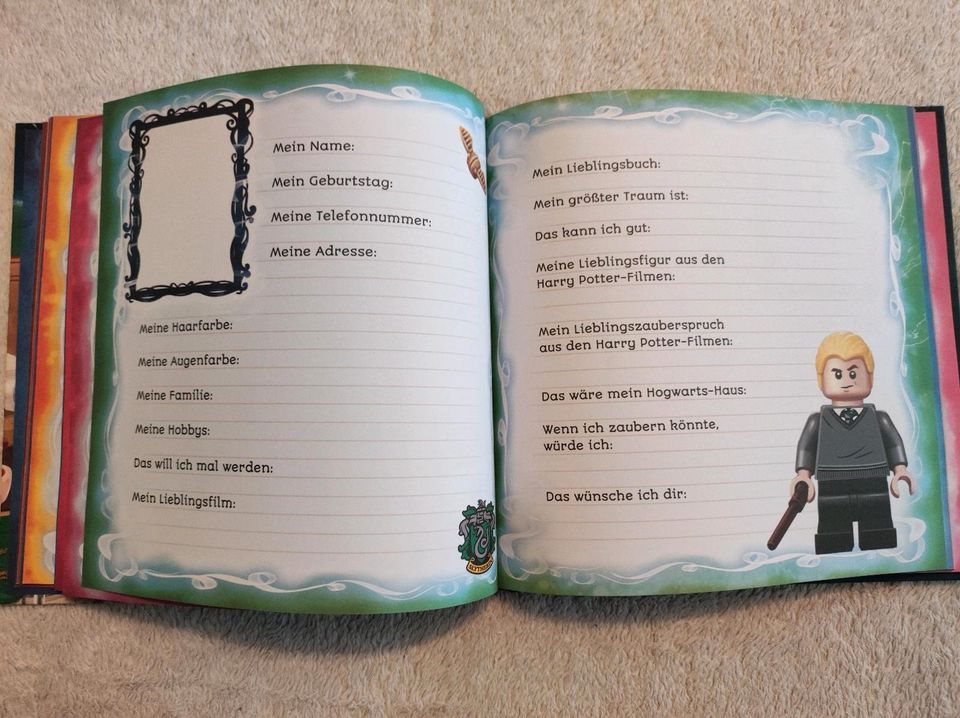 Mein Name:
Mein Geburtstag:
Meine Telefonnummer:
Meine Adresse:
Meine Haarfarbe:
Meine Augenfarbe:
Meine Familie:
Meine Hobbys:
Das will ich mal werden:
Mein Lieblingsfilm:
SLYTHERIN
Mein Lieblingsbuch:
Mein größter Traum ist:
Das kann ich gut:
Meine Lieblingsfigur aus den
Harry Potter-Filmen:
Mein Lieblingszauberspruch
aus den Harry Potter-Filmen:
Das wäre mein Hogwarts-Haus:
Wenn ich zaubern könnte,
würde ich:
Das wünsche ich dir: